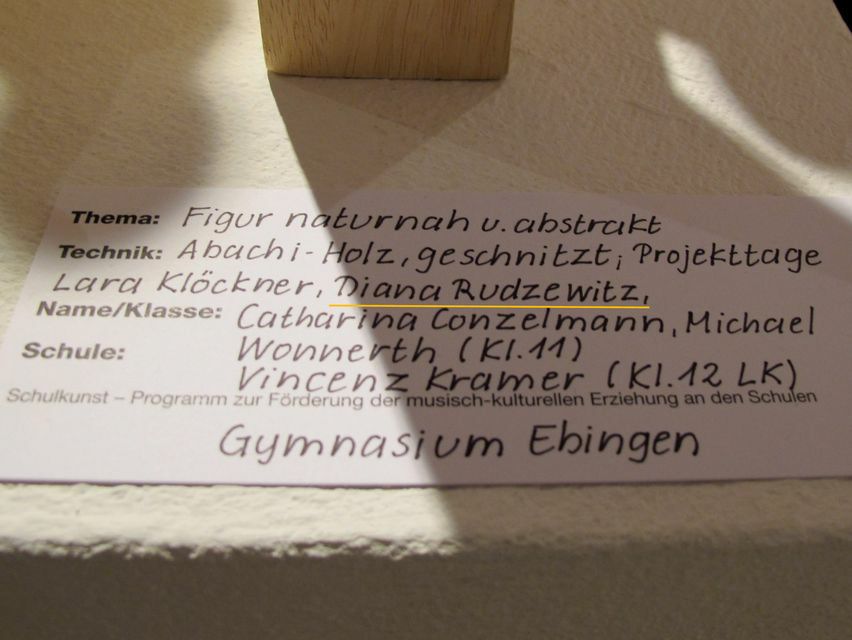 Thema: Figur naturnah u. abstrakt
Technik: Abachi-Holz, geschnitzt; Projekttage
Lara Klöckner, Diana Rudzewitz,
Name/Klasse: Catharina Conzelmann, Michael
Schule: Wonnerth (Kl.11)
Vincenz Kramer (Kl.12 LK)
Schulkunst – Programm zur Förderung der musisch-kulturellen Erziehung an den Schulen
Gymnasium Ebingen